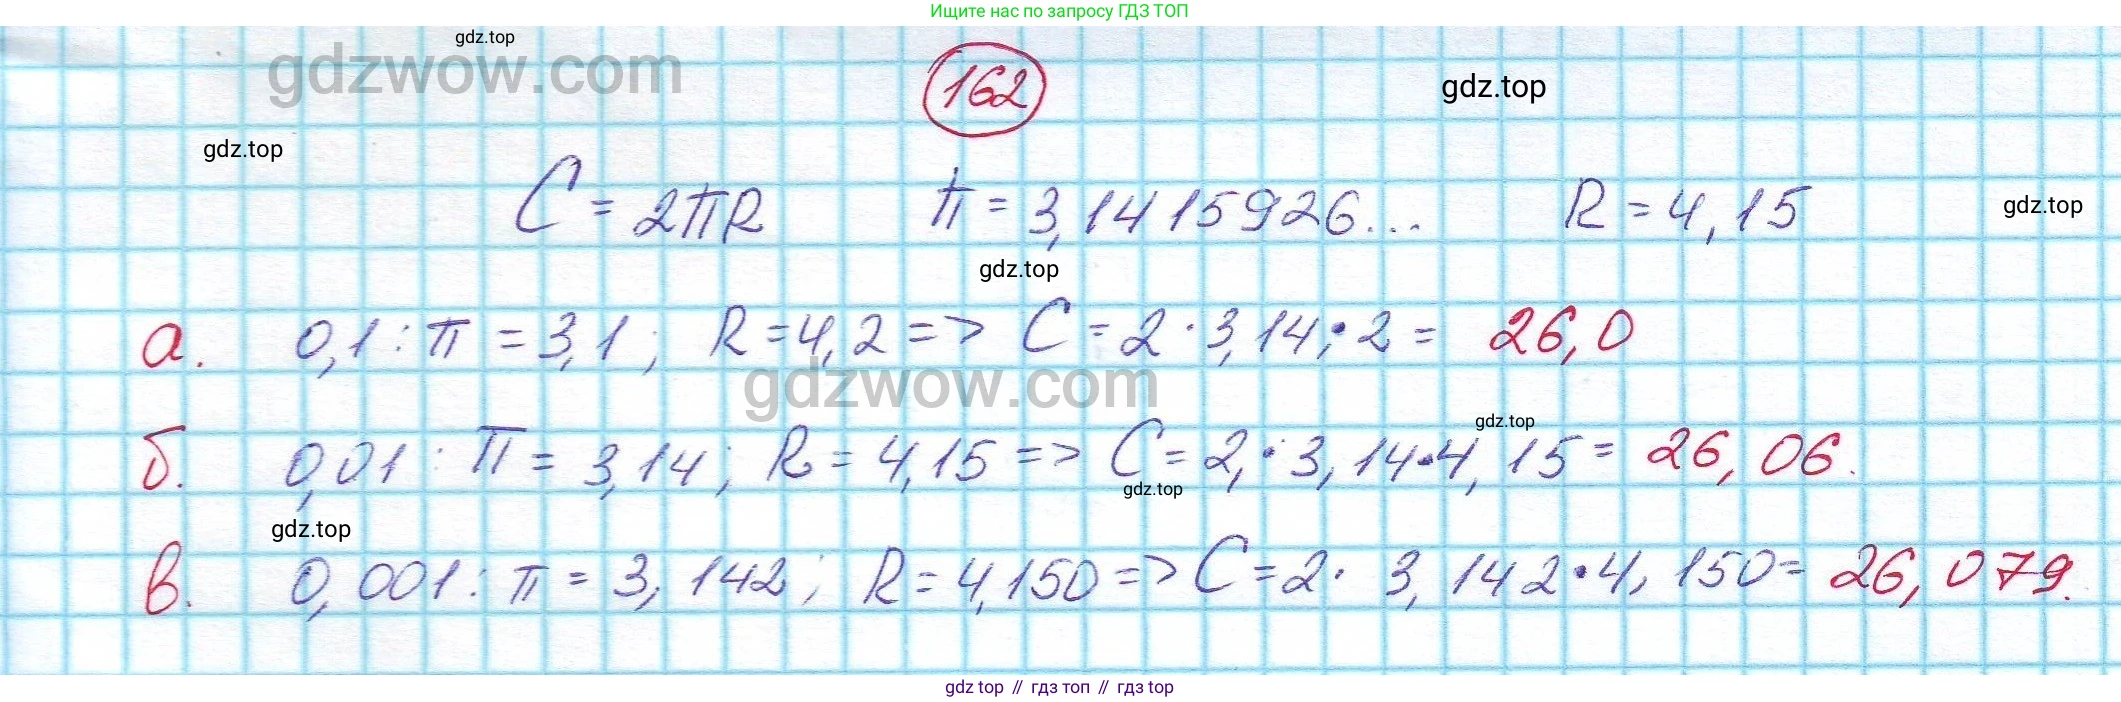 Ищите нас по запросу ГДЗ ТОП
gdz.top
gdzwow.com
162
gdz.top
gdz.top
C = 2πR π = 3,1415926... R = 4,15
gdz.top
gdz.top
а. 0,1 : π = 3,1 ; R = 4,2 => C = 2 · 3,14; · 2 = 26,0
gdzwow.com
gdz.top
б. 0,01 : π = 3,14 ; R = 4,15 => C = 2, · 3,14 · 4,15 = 26,06.
gdz.top
gdz.top
в. 0,001 : π = 3,142 ; R = 4,150 => C = 2 · 3,142 · 4,150 = 26,079.
gdz top // гдз топ // гдз top